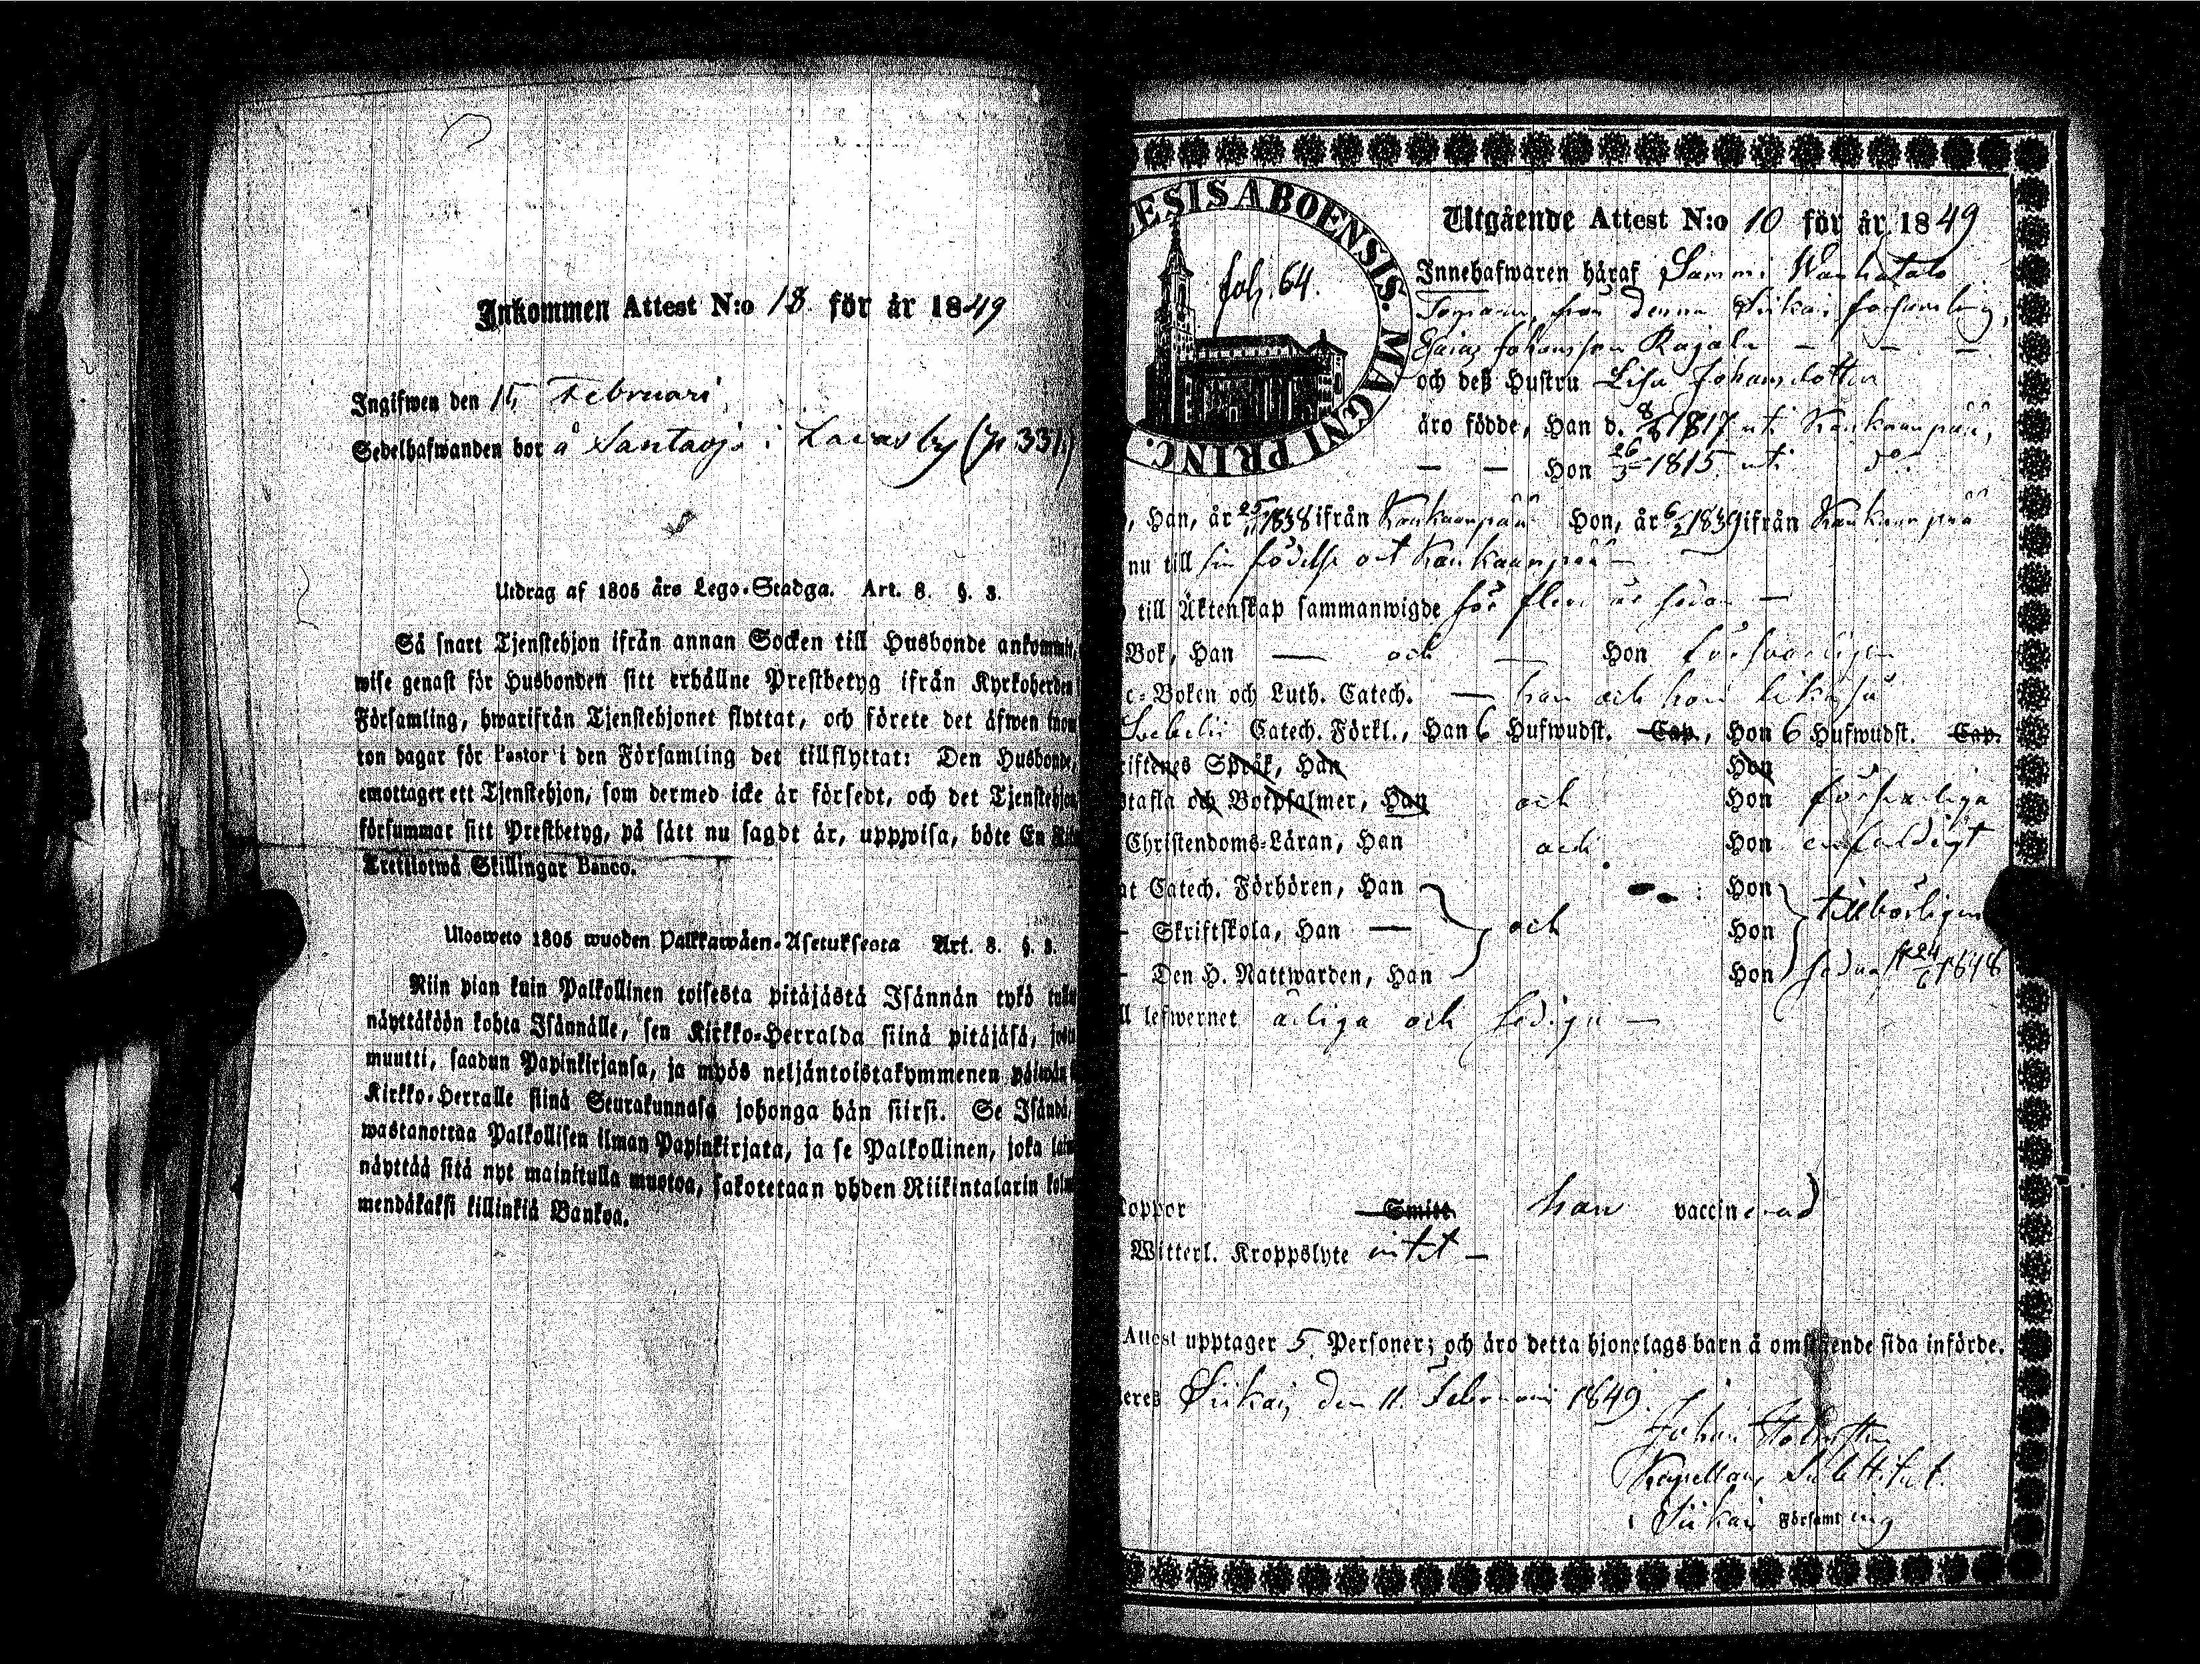 Inkommen Attest N:o 18 för år 1849
Ingifwen den 15 Februari
Sedelhafwanden bor å Santaoja i Lavasby (p 331)
Utdrag af 1805 års Lego-Stadga. Art. 8. §. 3.
Så snart Tjenstehjon ifrån annan Socken till Husbonde ankommit,
wise genast för Husbonden sitt erhållne Prestbetyg ifrån Kyrkoherden
Församling, hwarifrån Tjenstehjonet flyttat, och förete det äfwen inom
ton dagar för Pastor i den Församling det tillflyttat: Den Husbonde,
emottager ett Tjenstehjon, som dermed icke är försedt, och det Tjenstehjon
försummar sitt Prestbetyg, på sätt nu sagdt är, uppwisa, böte En
Trettiotwå Skillingar Banco.
Ulosweto 1805 wuoden Palkkawäen-Asetuksesta Art. 8. §. 3.
Niin pian kuin Palkollinen toisesta pitäjästä Isännän tykö
näyttäköön kohta Isännälle, sen Kirkko-Herralda siinä pitäjäsä,
muutti, saadun Papinkirjansa, ja myös neljäntoistakymmenen päiwän
Kirkko-Herralle siinä Seurakunnasa johonga hän siirsi. Se Isändä,
wastanottaa Palkollisen ilman Papinkirjata, ja se Palkollinen, joka
näyttää sitä nyt mainitulla muotoa, sakotetaan yhden Riikintalarin
mendäkaksi killinkiä Bankoa.
ESIS ABOENSIS. MAGNI PRINC.
fol. 64.
Utgående Attest N:o 10 för år 1849
Innehafwaren häraf Sammi Wanhatalo
från denna Siikais församling,
Esaias Johansson Rajala
och deß Hustru Lisa Johansdotter
äro födde, Han d. 8/8 1817 uti Kankaanpää,
— — Hon 26/3 1815 uti do.
, Han, år 25/11 1838 ifrån Kankaanpää Hon, år 6/2 1839 ifrån Kankaanpää
nu till sin födelse ort Kankaanpää —
till Äktenskap sammanwigde för flere år sedan —
Bok, Han — och — Hon försvarligen
c-Boken och Luth. Catech. — han och hon likaså
Sebelii Catech. Förkl., Han 6 Hufwudst. Cap., Hon 6 Hufwudst. Cap.
riftenes Språk, Han Hon
stafla och Botpsalmer, Han och Hon försvarliga
Christendoms-Läran, Han och Hon enfaldigt
at Catech. Förhören, Han Hon
— Skriftskola, Han — och Hon tillbörligen
— Den H. Nattwarden, Han Hon sednast 24/6 1848
ll lefwernet ärliga och lediga —
koppor Smitt. han vaccinerad
Witterl. Kroppslyte intet —
Attest upptager 5 Personer; och äro detta hjonelags barn å omstående sida införde.
eres Siikais den 11 Februari 1849.
Johan
Kapellans Substitut
i Siikais Församling